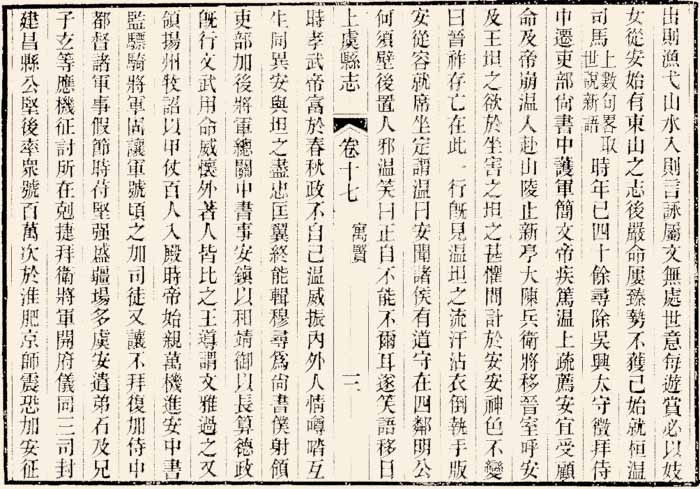 出則漁弋山水入則言詠屬文無處世意每遊賞必以妓
女從安始有東山之志後嚴命屢臻勢不獲已始就桓溫
司馬上數句畧取世說新語時年已四十餘尋除吳興太守徵拜侍
中遷吏部尚書中護軍簡文帝疾篤溫上疏薦安宜受顧
命及帝崩溫入赴山陵止新亭大陳兵衛將移晉室呼安
及王坦之欲於坐害之坦之甚懼問計於安安神色不變
曰晉祚存亡在此一行旣見溫坦之流汗沾衣倒執手版
安從容就席坐定謂溫曰安聞諸侯有道守在四鄰明公
何須壁後置人邪溫笑曰正自不能不爾耳遂笑語移日
上虞縣志 卷十七 寓賢 三
時孝武帝富於春秋政不自己溫威振內外人情噂𠴲互
生同異安與坦之盡忠匡翼終能輯穆尋為尚書僕射領
吏部加後將軍總關中書事安鎮以和靖御以長算德政
旣行文武用命威懷外著人皆比之王導謂文雅過之又
領揚州牧詔以甲仗百人入殿時帝始親萬機進安中書
監驃騎將軍固讓軍號頃之加司徒又讓不拜復加侍中
都督諸軍事假節時苻堅强盛疆場多虞安遣弟石及兄
子玄等應機征討所在剋捷拜衛將軍開府儀同三司封
建昌縣公堅後率眾號百萬次於淮肥京師震恐加安征